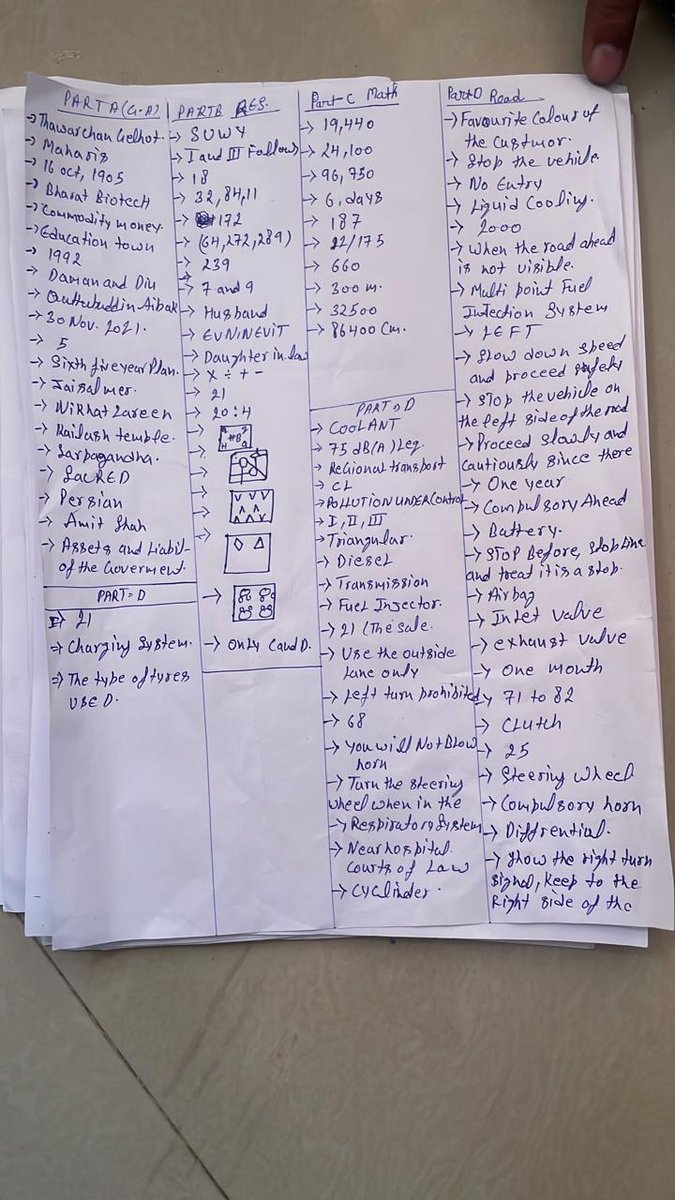 PART A (G.A)
→ Thawarchan Gelhot.
→ Maharis
→ 16 oct, 1905
→ Bharat Biotech
→ Commodity money.
→ Education town
→ 1992
→ Daman and Diu
→ Quttubuddin Aibak
→ 30 Nov. 2021.
→ 5
→ Sixth five year Plan.
→ Jaisalmer.
→ Nikhat Zareen
→ Kailash temple.
→ Sarpagandha.
→ SaCRED
→ Persian
→ Amit Shah
→ Assets and Liabil-
of the Goverment.
PART-D
→ 21
⇒ Charging System.
⇒ The type of tyres
USED.
PARTB RES.
→ SUWY
→ I and III Follows
→ 18
→ 32, 84, 11
→ 172
→ (64, 272, 289)
→ 239
→ 7 and 9
→ Husband
→ EVNINEVIT
→ Daughter in law
→ × ÷ + -
→ 21
→ 20:4
→ only C and D.
Part-C Math
→ 19,440
→ 24,100
→ 96,750
→ 6, days
→ 187
→ 22/175
→ 660
→ 300 m.
→ 32500
→ 86400 Cm.
PART-D
→ COOLANT
→ 75 dB(A) Leq.
→ Regional transport
→ CL
→ POLLUTION UNDER Control
→ I, II, III
→ Triangular.
→ Diesel
→ Transmission
→ Fuel Injector.
→ 21 (The sale.
→ Use the outside
Lane only
→ Left turn prohibited
→ 68
→ You will Not Blow
horn
→ Turn the steering
wheel when in the
→ Respiratory System
→ Near hospital
Courts of Law
→ Cyclinder.
Part-D Read
→ Favourite Colour of
the Custmor.
→ Stop the vehicle
→ No Entry
→ Liquid Cooling.
→ 2000
→ When the road ahead
is not visible.
→ Multi point Fuel
Injection System
→ LEFT
→ Slow down speed
and proceed safety
→ Stop the vehicle on
the left side of the road
→ Proceed slowly and
cautiously since there
→ One year
→ Compulsory Ahead
→ Battery.
→ Stop Before, Stop Line
and treat it is a stop.
→ Airbag
→ Inlet valve
→ exhaust valve
→ One month
→ 71 to 82
→ Clutch
→ 25
→ Steering wheel
→ Compulsory horn
→ Diffrential.
→ Show the right turn
signal, Keep to the
Right side of the